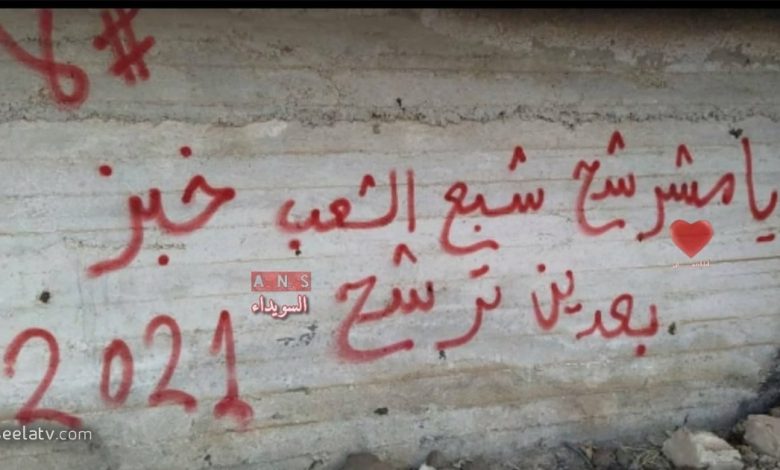 #لا
يا مشرشح شبع الشعب خبز
بعدين ترشح
2021
A N S
السويداء
seelatv.com